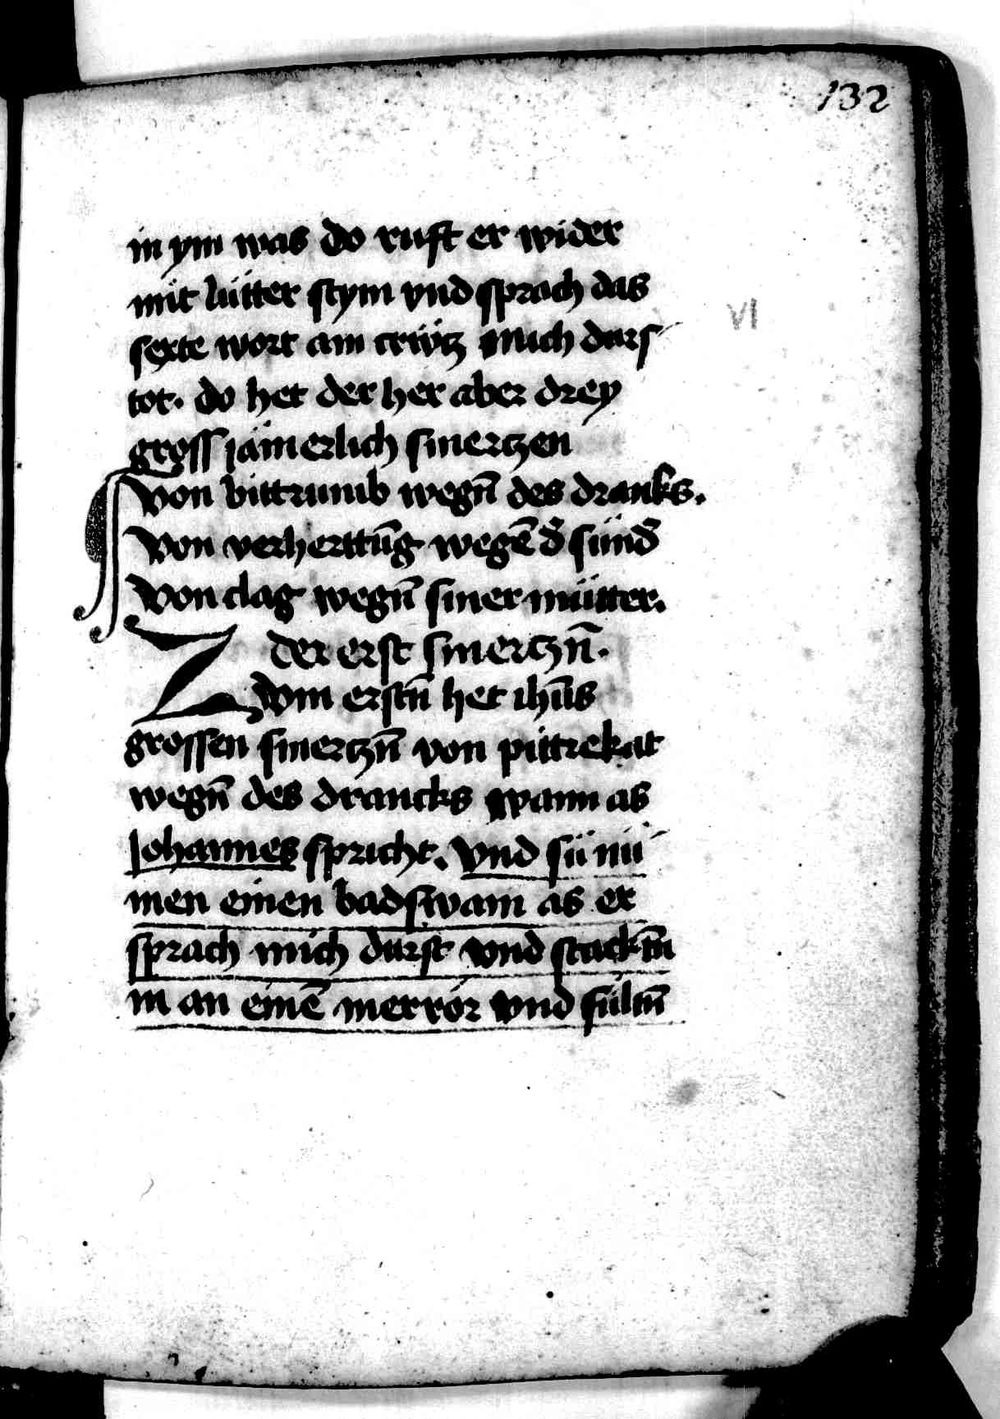 132
in ym was do ruft er wider
mit lütter stym vnd sprach das
VI
sexte wort am crwtz mich durs
tot. do het der her aber drey
gross jämerlich smertzen
Von bittrumb wegn̄ des dranks.
Von verherttūg wegē d̄ sünd̄
Von clag wegn̄ siner mütter.
der erst smertzn̄.
Zwm erstn̄ het ihūs
grossen smertzn̄ von pittrekat
wegn̄ des drancks wann as
Johannes spricht. Vnd sü nü
men einen badswam as er
sprach mich durst vnd stackt̄n
in an einē merrör vnd füln̄